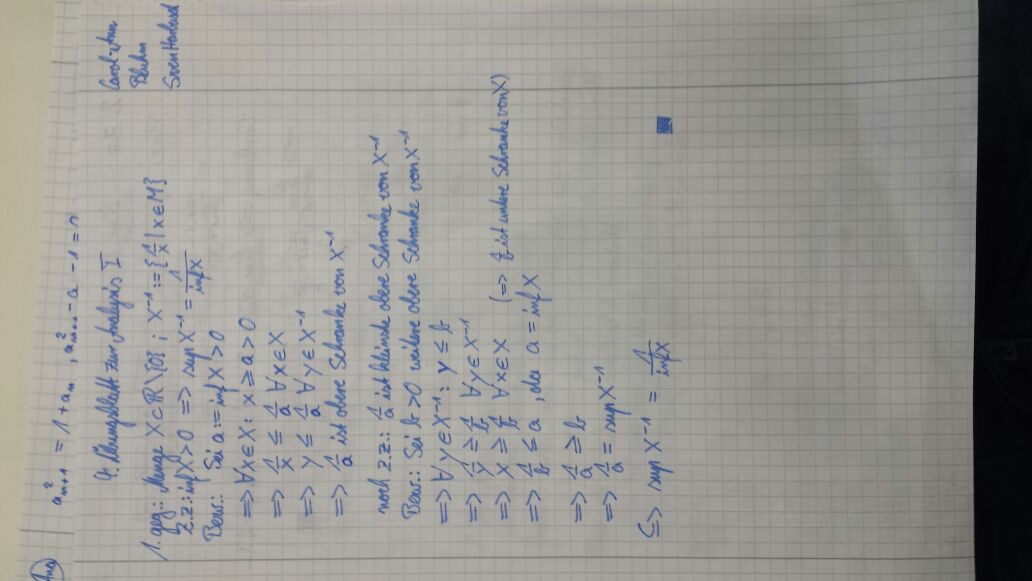 a²ₙ₊₁ = 1 + aₙ , a²ₙ₊₁ - a - 1 = 0
4. Übungsblatt zur Analysis I
Carol-Ann
Bluhm
1. geg.: Menge X ⊂ ℝ\{0} ; X⁻¹ := {1/x | x ∈ M}
z.z.: inf X > 0 => sup X⁻¹ = 1/inf X
Bew.: Sei a := inf X > 0
=> ∀x ∈ X : x ≥ a > 0
=> 1/x ≤ 1/a ∀x ∈ X
=> y ≤ 1/a ∀y ∈ X⁻¹
=> 1/a ist obere Schranke von X⁻¹
noch z.z.: 1/a ist kleinste obere Schranke von X⁻¹
Bew.: Sei b > 0 weitere obere Schranke von X⁻¹
=> ∀y ∈ X⁻¹ : y ≤ b
=> 1/y ≥ 1/b ∀y ∈ X⁻¹
=> x ≥ 1/b ∀x ∈ X (=> 1/b ist untere Schranke von X)
=> 1/b ≤ a , da a = inf X
=> 1/a ≥ b
=> 1/a = sup X⁻¹
<=> sup X⁻¹ = 1/inf X